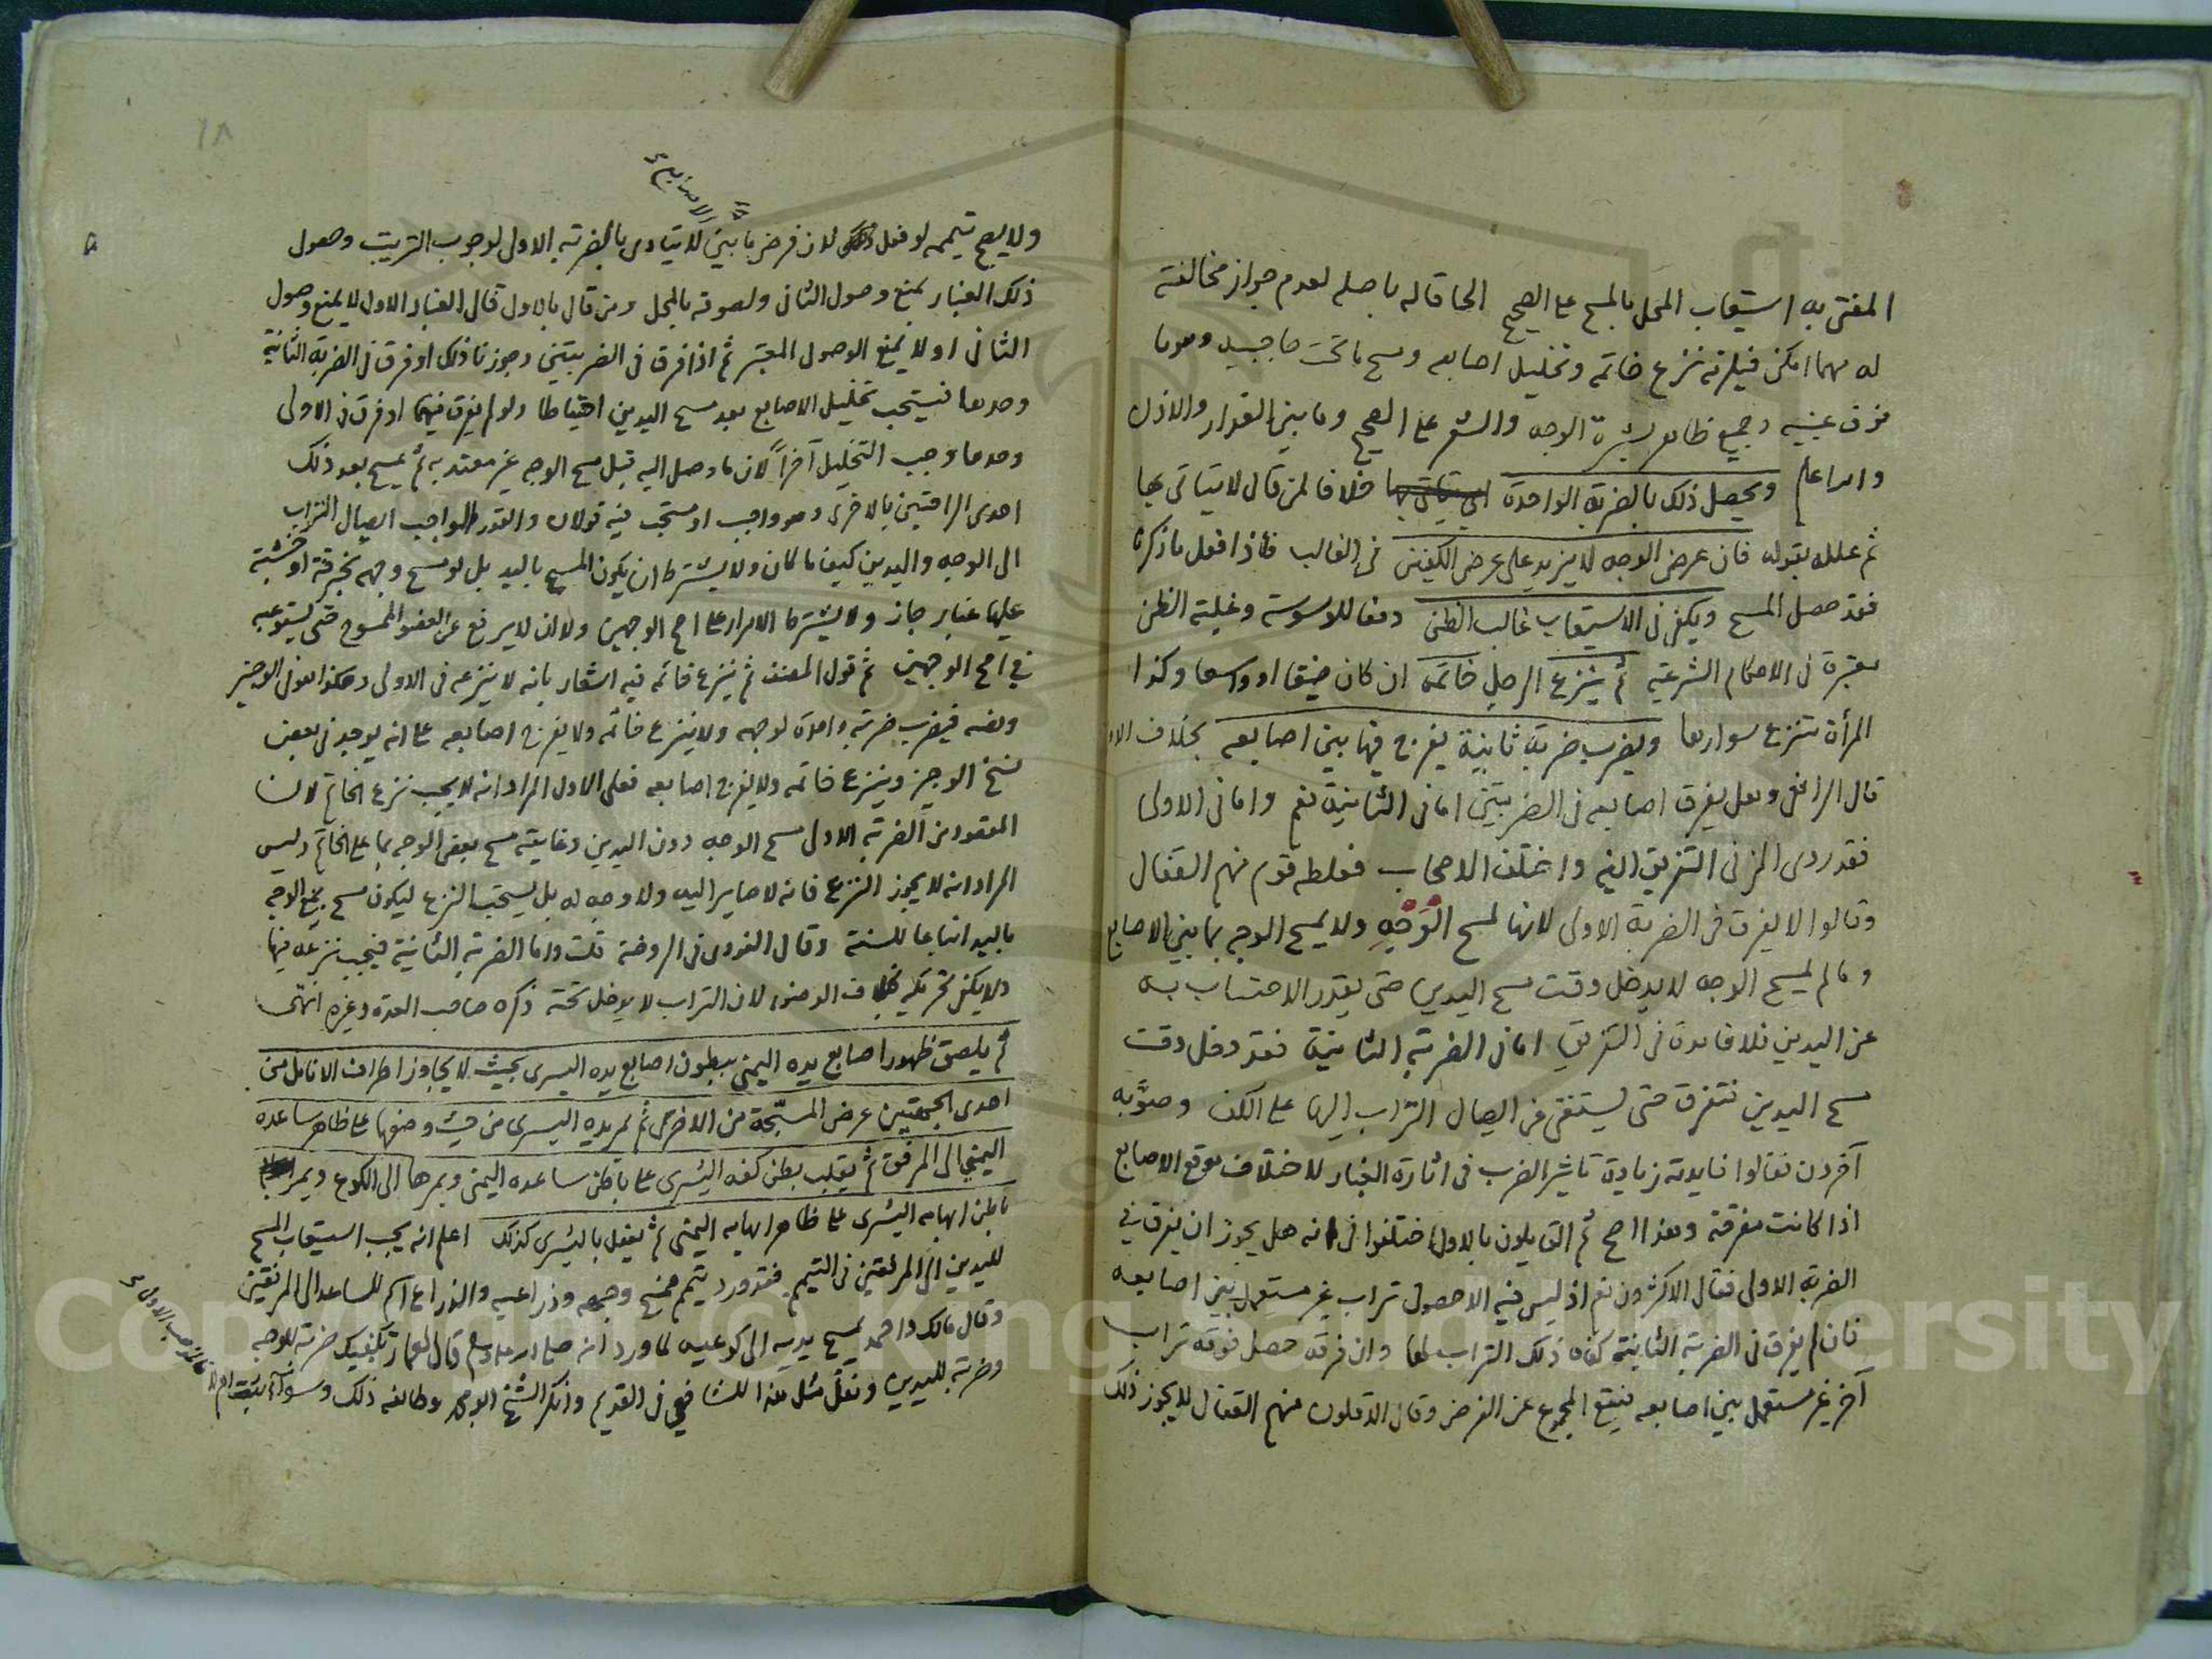 المفتى به استيعاب المحل بالمسح على الصحيح الحاقا له باصله لعدم جواز مخالفته
له مهما امكن فيلزمه نزع خاتمه وتخليل اصابعه ومسح ما تحت حاجبيه وهو ما
فوق عينيه وجميع ظاهر بشرة الوجه والشعر على الصحيح وما بين العذار والاذن
والله اعلم ويحصل ذلك بالضربة الواحدة خلافا لمن قال لا يتاتى بها
ثم علله بقوله فان عرض الوجه لا يزيد على عرض الكفين في الغالب فاذا فعل ما ذكره
فقد حصل المسح ويكفي في الاستيعاب غالب الظن دفعا للوسوسة وغلبة الظن
معتبرة في الاحكام الشرعية ثم ينزع الرجل خاتمه ان كان ضيقا او واسعا وكذا
المرأة تنزع سوارها ويضرب ضربة ثانية يفرج فيها بين اصابعه بخلاف الاو
قال الرافعي وهل يفرق اصابعه في الضربتين اما في الثانية نعم واما في الاولى
فقد روى المزني التفريق ايضا واختلف الاصحاب فغلطه قوم منهم القفال
وقالوا لا يفرق في الضربة الاولى لانها لمسح الوجه ولا يمسح الوجه بما بين الاصابع
وما لم يمسح الوجه لا يدخل وقت مسح اليدين حتى يقدر الاحتساب به
عن اليدين فلا فائدة في التفريق اما في الضربة الثانية فقد دخل وقت
مسح اليدين فتفرق حتى يستغنى عن ايصال التراب اليها على الكف وصوّبه
آخرون فقالوا فايدته زيادة تاثير الضرب في اثارة الغبار لاختلاف موقع الاصابع
اذا كانت مفرقة وهذا اصح ثم القايلون بالاول اختلفوا في انه هل يجوز ان يفرق في
الضربة الاولى فقال الاكثرون نعم اذ ليس فيه الا حصول تراب غير مستعمل بين اصابعه
فان لم يفرق في الضربة الثانية كفاه ذلك التراب لها وان فرقه حصل فوقه تراب
آخر غير مستعمل بين اصابعه فيقع المجموع عن الفرض وقال الاقلون منهم القفال لا يجوز ذلك
١٨
الاصابع
ولا يصح تيممه لو فعل لان فرض ما بين لا يتادى بالضربة الاولى لوجوب الترتيب وحصول
ذلك الغبار يمنع وصول الثاني ولصوقه بالمحل ومن قال بالاول قال الغبار الاول لا يمنع وصول
الثاني او لا يمنع الوصول المعتبر ثم اذا فرق في الضربتين وجوزنا ذلك او فرق في الضربة الثانية
وحدها فيستحب تخليل الاصابع بعد مسح اليدين احتياطا ولو لم يفرق فيهما او فرق في الاولى
وحدها وجب التخليل آخراً لان ما وصل اليه قبل مسح الوجه غير معتد به ثم يمسح بعد ذلك
احدى الراحتين بالاخرى وهو واجب او مستحب فيه قولان والقدر الواجب ايصال التراب
الى الوجه واليدين كيف ما كان ولا يشترط ان يكون المسح باليد بل لو مسح وجهه بخرقة او خشبة
عليها غبار جاز ولا يشترط الامرار على اصح الوجهين ولا ان لا يرفع عن العضو الممسوح حتى يستوعبه
في اصح الوجهين ثم قول المصنف ثم ينزع خاتمه فيه اشعار بانه لا ينزعه في الاولى وهكذا هو في الوجيز
ونصه فيضرب ضربة واحدة لوجهه ولا ينزع خاتمه ولا يفرج اصابعه على انه يوجد في بعض
نسخ الوجيز وينزع خاتمه ولا يفرج اصابعه فعلى الاول المراد انه لا يجب نزع الخاتم لان
المقصود من الضربة الاولى مسح الوجه دون اليدين وغايته مسح بعض الوجه بما على الخاتم وليس
المراد انه لا يجوز النزع فانه لا صاير اليه ولا وجه له بل يستحب النزع ليكون مسح جميع الوجه
باليد اتباعا للسنة وقال النووي في الروضة قلت واما الضربة الثانية فيجب نزعه فيها
ولا يكفي تحريكه بخلاف الوضوء لان التراب لا يدخل تحته ذكره صاحب العدة وغيره انتهى
ثم يلصق ظهور اصابع يده اليمنى ببطون اصابع يده اليسرى بحيث لا يجاوز اطراف الانامل من
احدى الجهتين عرض المسبّحة من الاخرى ثم يمر يده اليسرى من حيث وضعها على ظاهر ساعده
اليمنى الى المرفق ثم يقلب بطن كفه اليسرى على باطن ساعده اليمنى ويمرها الى الكوع ويمر
باطن ابهامه اليسرى على ظاهر ابهامه اليمنى ثم يفعل باليسرى كذلك اعلم انه يجب استيعاب المسح
لليدين الى المرفقين في التيمم فقد ورد تيمم فمسح وجهه وذراعيه والذراع اسم للساعد الى المرفقين
وقال مالك واحمد يمسح يديه الى كوعيه لما ورد انه صلى الله عليه وسلم قال لعمار تكفيك ضربة للوجه
وضربة لليدين ونقل مثل هذا للشافعي في القديم وانكر الشيخ ابو محمد وطائفة ذلك وسواء ثبت ام لا
فالمذهب الاول
Copyright © King Saud University